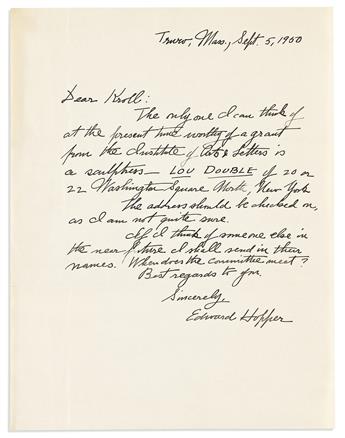 Truro, Mass., Sept. 5, 1950
Dear Kroll:
The only one I can think of
at the present time worthy of a grant
from the Institute of Arts & Letters is
a sculptress— LOU DOUBLE of 20 or
22 Washington Square North, New York
The address should be checked on,
as I am not quite sure.
If I think of someone else in
the near future I shall send in their
names. When does the committee meet?
Best regards to you.
Sincerely,
Edward Hopper